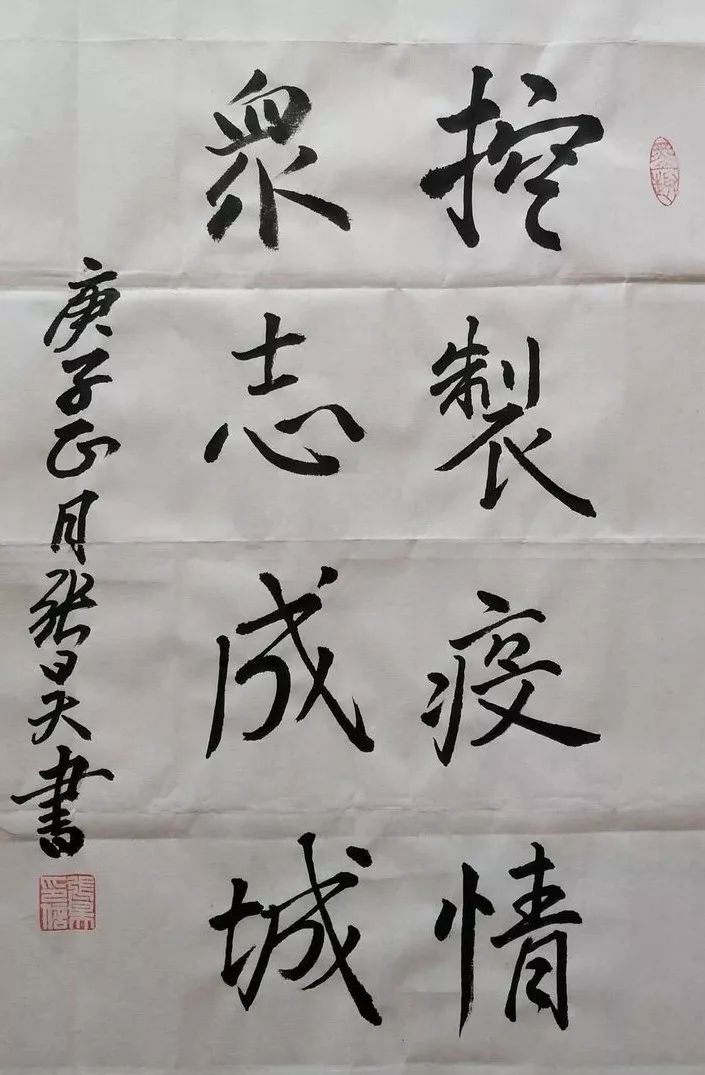 控製疫情
衆志成城
庚子正月張日天書